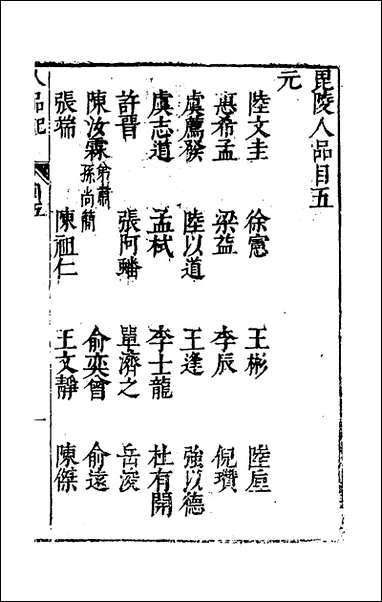 毘陵人品目五
元
陸文圭 徐憲 王彬 陸垕
惠希孟 梁益 李辰 倪瓚
虞薦發 陸以道 王逢 強以德
虞志道 孟栻 李士龍 杜有開
許晉 張阿轓 單濟之 岳浚
陳汝霖 弟蕭 孫尚簡 俞奕曾 俞遠
張端 陳祖仁 王文靜 陳傑
人品記 目五 一